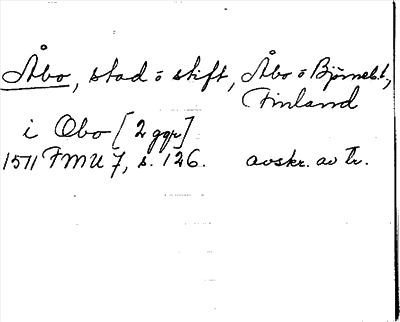 Åbo, stad o stift, Åbo o Björneb.l.,
Finland
i Obo [2 ggr]
1511 FMU 7, s. 126. avskr. av Tr.